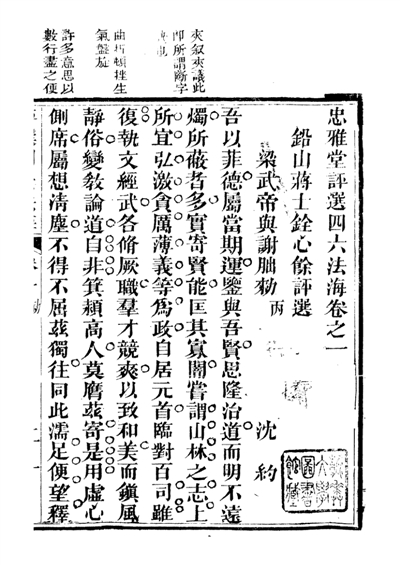 忠雅堂評選四六法海卷之一
鉛山蔣士銓心餘評選
梁武帝與謝朏勅 丙
沈約
夾叙夾議此
即所謂斷字
曲折頓挫生
氣盤旋
許多意思以
數行盡之便
吾以菲德屬當期運鑒與吾賢思隆治道而明不遠
燭所蔽者多實寄賢能匡其寡闇嘗謂山林之志上
所宜弘激貪厲薄義等為政自居元首臨對百司雖
復執文經武各脩厥職羣才競爽以致和美而鎭風
靜俗變敎論道自非箕潁高人莫膺兹寄是用虛心
側席屬想清塵不得不屈兹獨往同此濡足便望釋